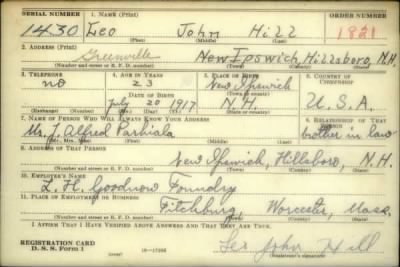 SERIAL NUMBER 1. NAME (Print) ORDER NUMBER
1430 Leo John Hill 1921
(First) (Middle) (Last)
2. ADDRESS (Print)
Greenville New Ipswich, Hillsboro, N.H.
(Number and street or R. F. D. number) (Town) (County) (State)
3. TELEPHONE 4. AGE IN YEARS 5. PLACE OF BIRTH 6. COUNTRY OF CITIZENSHIP
no 23 New Ipswich
DATE OF BIRTH (Town or county)
July 20 1917 N.H. U.S.A.
(Exchange) (Number) (Mo.) (Day) (Yr.) (State or country)
7. NAME OF PERSON WHO WILL ALWAYS KNOW YOUR ADDRESS 6. RELATIONSHIP OF THAT PERSON
Mr. J. Alfred Parhiala brother in law
(Mr., Mrs., Miss) (First) (Middle) (Last)
8. ADDRESS OF THAT PERSON
New Ipswich, Hillsboro, N.H.
(Number and street or R. F. D. number) (Town) (County) (State)
10. EMPLOYER'S NAME
L. H. Goodnow Foundry
11. PLACE OF EMPLOYMENT OR BUSINESS
Fitchburg Worcester, Mass.
(Number and street or R. F. D. number) (Town) (County) (State)
I AFFIRM THAT I HAVE VERIFIED ABOVE ANSWERS AND THAT THEY ARE TRUE.
REGISTRATION CARD
D. S. S. Form 1 (over) Leo John Hill